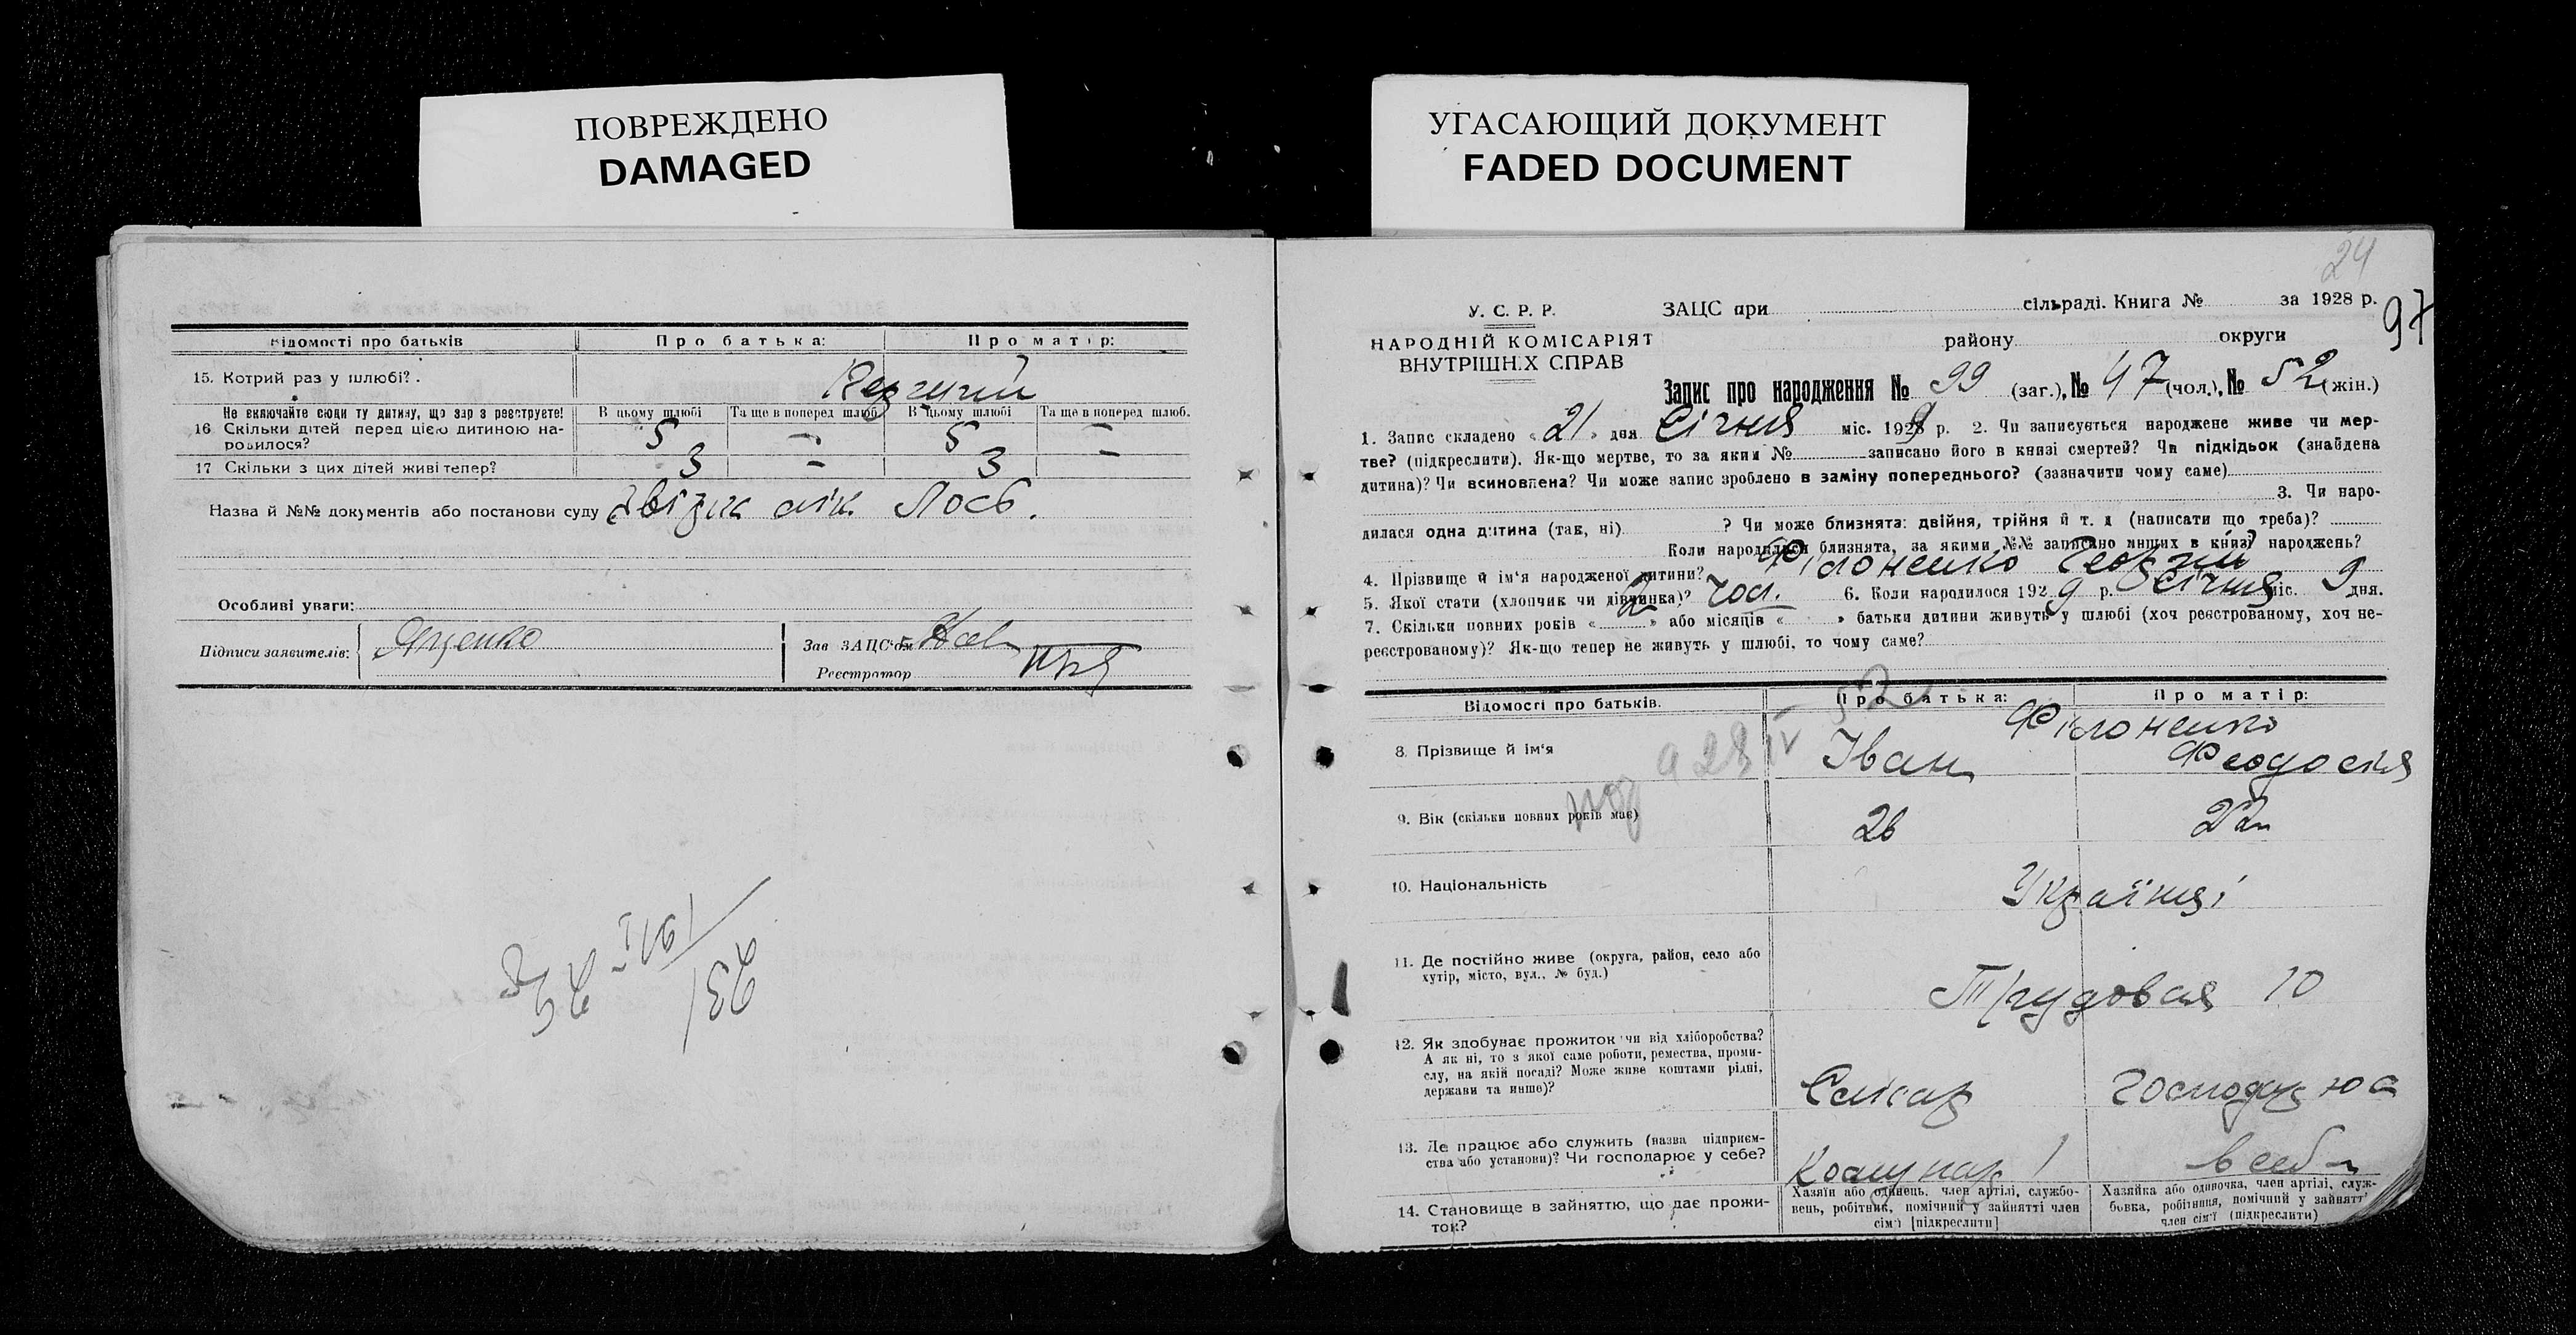 ПОВРЕЖДЕНО
DAMAGED
УГАСАЮЩИЙ ДОКУМЕНТ
FADED DOCUMENT
Відомості про батьків
Про батька:
Про матір:
15. Котрий раз у шлюбі?
Первий
Не включайте сюди ту дитину, що зар з реєструєте!
В цьому шлюбі
Та ще в поперед шлюб.
В цьому шлюбі
Та ще в поперед шлюб.
16 Скільки дітей перед цією дитиною на-
родилося?
5 — 5 —
17 Скільки з цих дітей живі тепер?
3 — 3 —
Назва й №№ документів або постанови суду
лік. Лось.
Особливі уваги:
Підписи заявителів:
Яценко
Зав ЗАЦС'ом
Реєстратор
24
97
У. С. Р. Р.
НАРОДНІЙ КОМІСАРІЯТ
ВНУТРІШНІХ СПРАВ
ЗАЦС при сільраді. Книга № за 1928 р.
району округи
Запис про народження № 99 (заг.), № 47 (чол.), № 52 (жін.)
1. Запис складено « 21 » дня Січня міс. 1929 р. 2. Чи записується народжене живе чи мер-
тве? (підкреслити). Як-що мертве, то за яким № записано його в книзі смертей? Чи підкідьок (знайдена
дитина)? Чи всиновлена? Чи може запис зроблено в заміну попереднього? (зазначити чому саме)
3. Чи наро-
дилася одна дитина (так, ні) ? Чи може близнята: двійня, трійня й т. д (написати що треба)?
Коли народилися близнята, за якими №№ записано инших в книзі народжень?
4. Прізвище й ім'я народженої дитини? Філоненко Георгій
5. Якої стати (хлопчик чи дівчинка)? чол. 6. Коли народилося 1929 р. Січня міс. 9 дня.
7. Скільки повних років « » або місяців « » батьки дитини живуть у шлюбі (хоч реєстрованому, хоч не-
реєстрованому)? Як-що тепер не живуть у шлюбі, то чому саме?
Відомості про батьків.
Про батька:
Про матір:
8. Прізвище й ім'я
Філоненко
Іван
Феодосия
9. Вік (скільки повних років має)
26
22
10. Національність
Українці
11. Де постійно живе (округа, район, село або
хутір, місто, вул., № буд.)
Трудовая 10
12. Як здобуває прожиток чи від хліборобства?
А як ні, то з якої саме роботи, ремества, проми-
слу, на якій посаді? Може живе коштами рідні,
держави та инше)?
Слюсар
13. Де працює або служить (назва підприєм-
ства або установи)? Чи господарює у себе?
Комунар 1
в себе
14. Становище в зайняттю, що дає прожи-
ток?
Хазяїн або одинець, член артілі, службо-
вець, робітник, помічний у зайнятті член
сім'ї [підкреслити]
Хазяйка або одиночка, член артілі, служ-
бовка, робітниця, помічний у зайнятт'
член сім'ї (підкреслити)